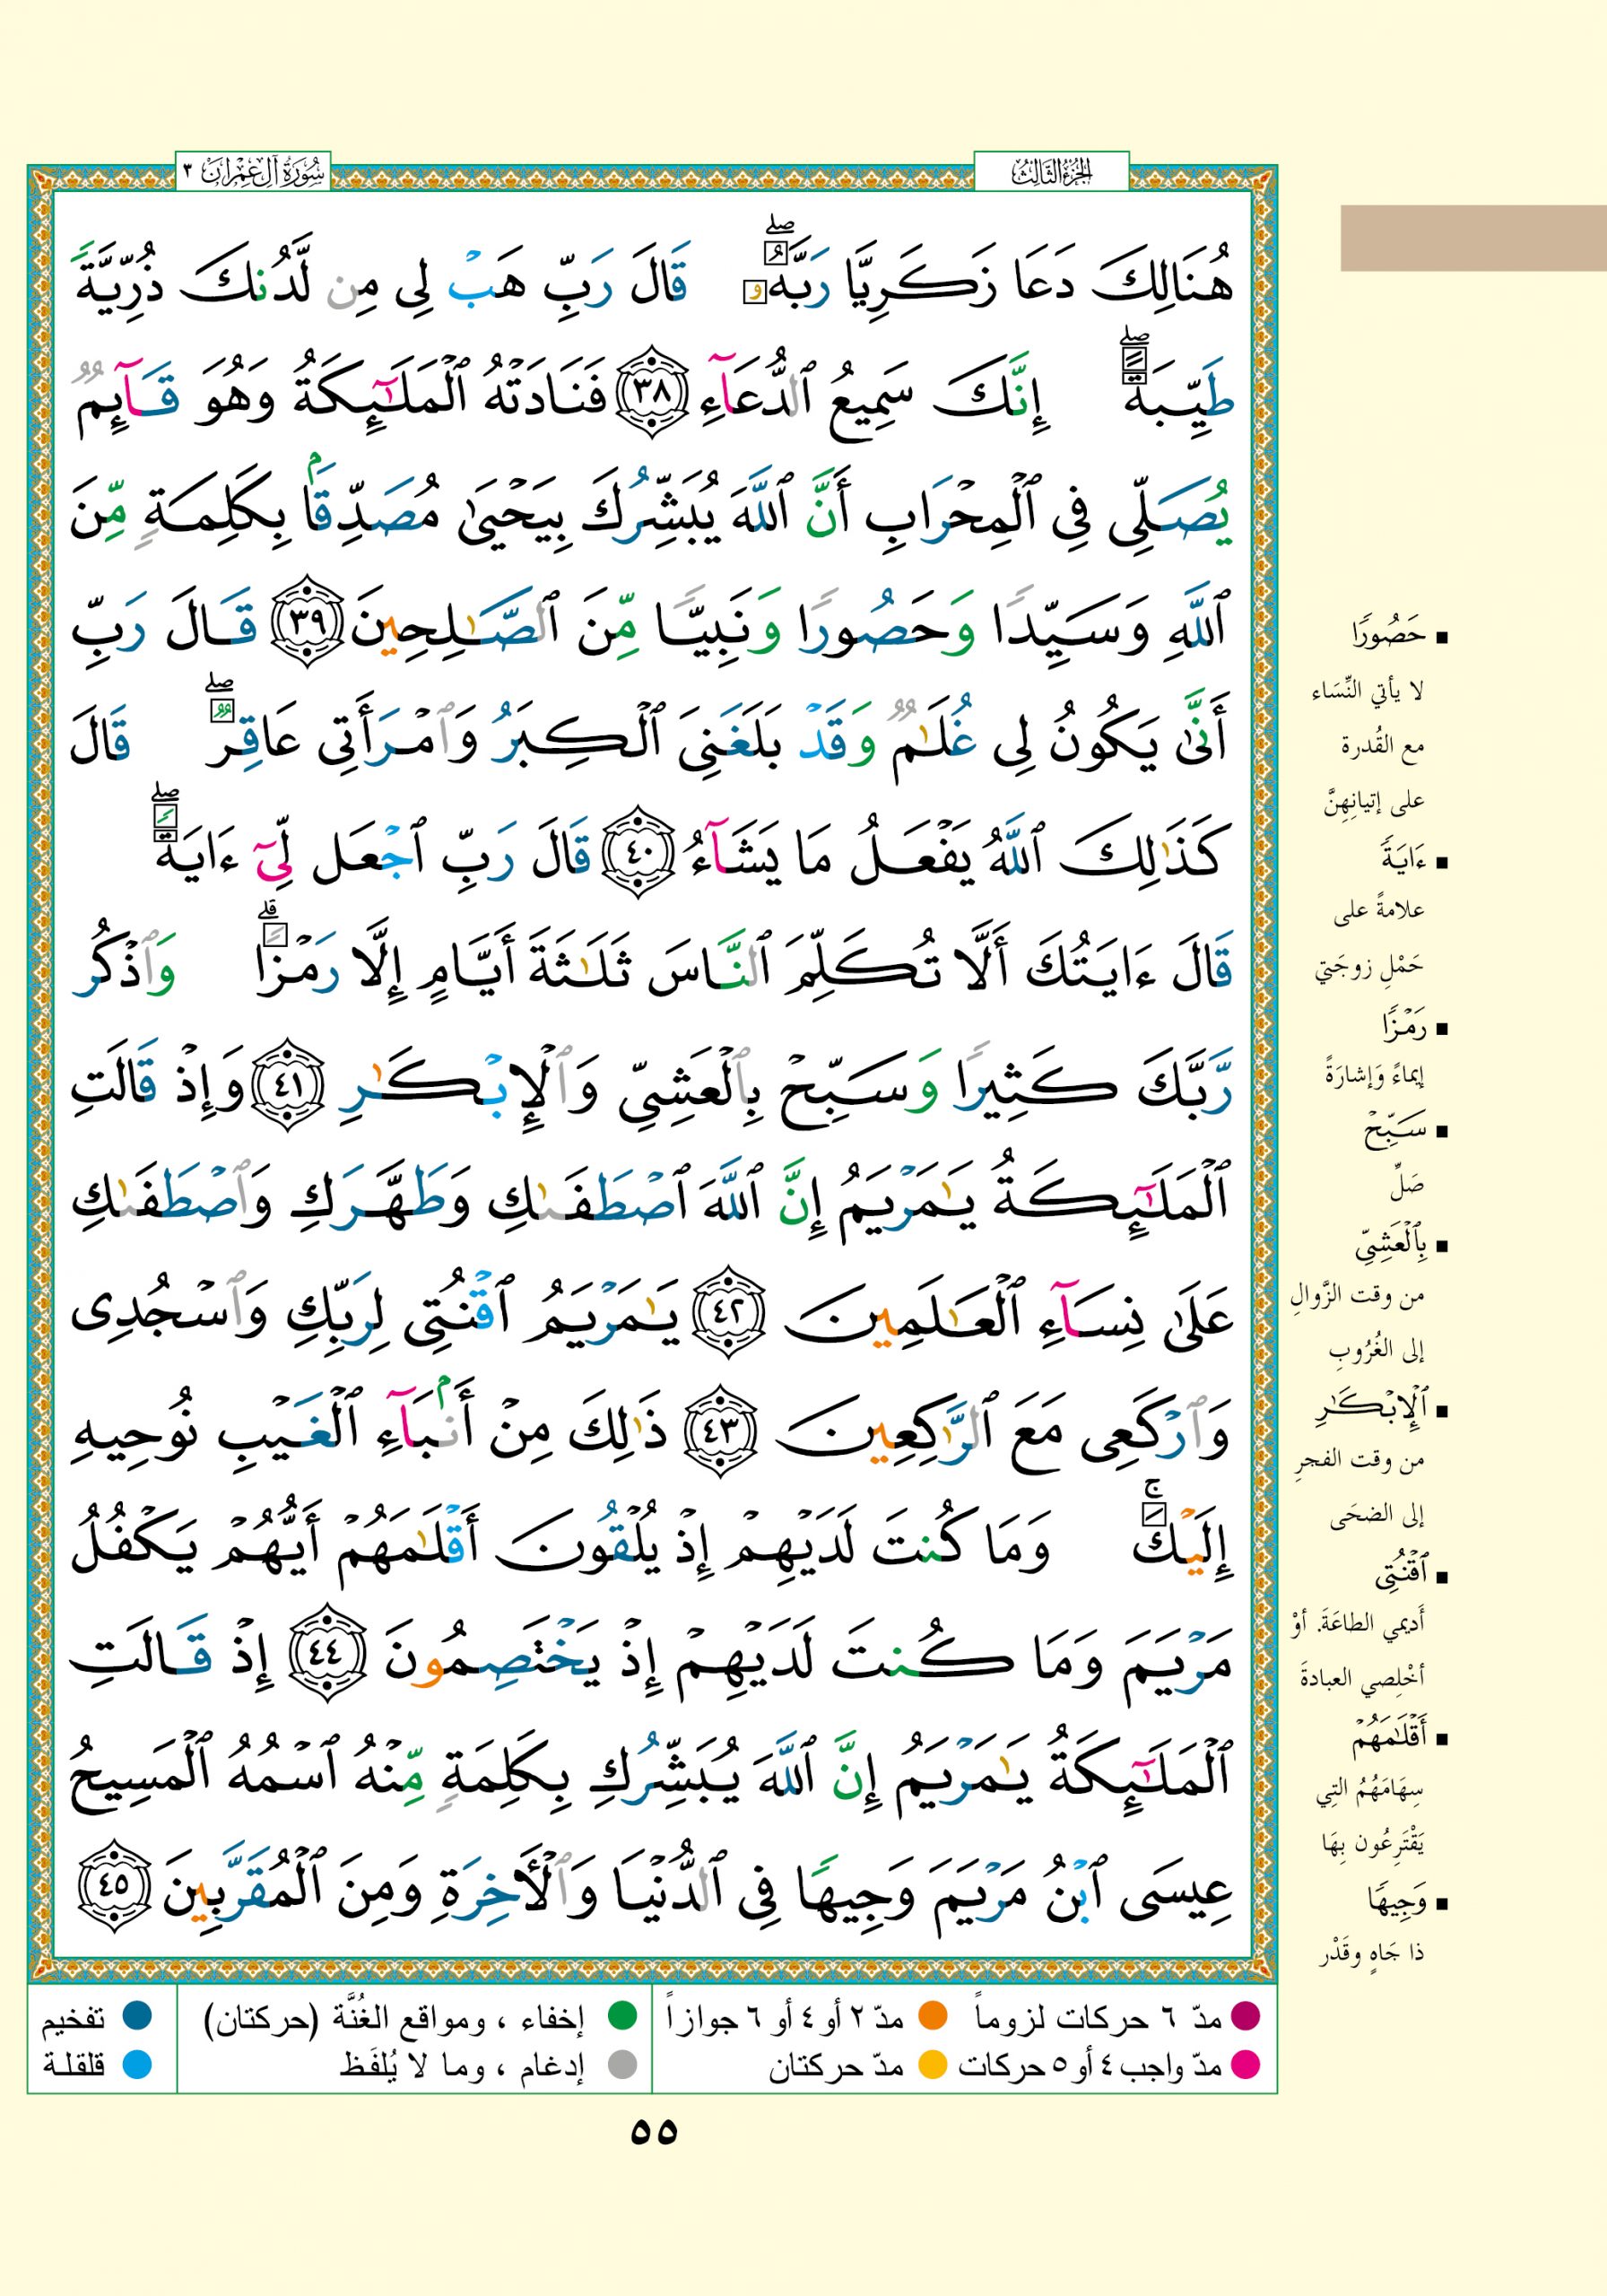 الجُزْءُ الثَّالِثُ
سُورَةُ آلِ عِمْرَانَ ٣
هُنَالِكَ دَعَا زَكَرِيَّا رَبَّهُۥ ۖ قَالَ رَبِّ هَبۡ لِى مِن لَّدُنكَ ذُرِّيَّةً
طَيِّبَةً ۖ إِنَّكَ سَمِيعُ ٱلدُّعَآءِ ٣٨ فَنَادَتۡهُ ٱلۡمَلَـٰٓئِكَةُ وَهُوَ قَآئِمٌ
يُصَلِّى فِى ٱلۡمِحۡرَابِ أَنَّ ٱللَّهَ يُبَشِّرُكَ بِيَحۡيَىٰ مُصَدِّقَۢا بِكَلِمَةٍ مِّنَ
ٱللَّهِ وَسَيِّدًا وَحَصُورًا وَنَبِيًّا مِّنَ ٱلصَّـٰلِحِينَ ٣٩ قَالَ رَبِّ
أَنَّىٰ يَكُونُ لِى غُلَـٰمٌ وَقَدۡ بَلَغَنِىَ ٱلۡكِبَرُ وَٱمۡرَأَتِى عَاقِرٌ ۖ قَالَ
كَذَٰلِكَ ٱللَّهُ يَفۡعَلُ مَا يَشَآءُ ٤٠ قَالَ رَبِّ ٱجۡعَل لِّىٓ ءَايَةً ۖ
قَالَ ءَايَتُكَ أَلَّا تُكَلِّمَ ٱلنَّاسَ ثَلَـٰثَةَ أَيَّامٍ إِلَّا رَمۡزًا ۗ وَٱذۡكُر
رَّبَّكَ كَثِيرًا وَسَبِّحۡ بِٱلۡعَشِىِّ وَٱلۡإِبۡكَـٰرِ ٤١ وَإِذۡ قَالَتِ
ٱلۡمَلَـٰٓئِكَةُ يَـٰمَرۡيَمُ إِنَّ ٱللَّهَ ٱصۡطَفَىٰكِ وَطَهَّرَكِ وَٱصۡطَفَىٰكِ
عَلَىٰ نِسَآءِ ٱلۡعَـٰلَمِينَ ٤٢ يَـٰمَرۡيَمُ ٱقۡنُتِى لِرَبِّكِ وَٱسۡجُدِى
وَٱرۡكَعِى مَعَ ٱلرَّٰكِعِينَ ٤٣ ذَٰلِكَ مِنۡ أَنۢبَآءِ ٱلۡغَيۡبِ نُوحِيهِ
إِلَيۡكَ ۚ وَمَا كُنتَ لَدَيۡهِمۡ إِذۡ يُلۡقُونَ أَقۡلَـٰمَهُمۡ أَيُّهُمۡ يَكۡفُلُ
مَرۡيَمَ وَمَا كُنتَ لَدَيۡهِمۡ إِذۡ يَخۡتَصِمُونَ ٤٤ إِذۡ قَالَتِ
ٱلۡمَلَـٰٓئِكَةُ يَـٰمَرۡيَمُ إِنَّ ٱللَّهَ يُبَشِّرُكِ بِكَلِمَةٍ مِّنۡهُ ٱسۡمُهُ ٱلۡمَسِيحُ
عِيسَى ٱبۡنُ مَرۡيَمَ وَجِيهًا فِى ٱلدُّنۡيَا وَٱلۡأَخِرَةِ وَمِنَ ٱلۡمُقَرَّبِينَ ٤٥
حَصُورًا
لا يأتي النِّسَاء
مع القُدرة
على إتيانِهِنَّ
ءَايَةً
علامةً على
حَمْلِ زوجَتي
رَمۡزًا
إيماءً وَإشارَةً
سَبِّحۡ
صَلِّ
بِٱلۡعَشِىِّ
من وقت الزَّوالِ
إلى الغُرُوبِ
ٱلۡإِبۡكَـٰرِ
من وقت الفجرِ
إلى الضحَى
ٱقۡنُتِى
أَديمي الطاعَةَ. أوْ
أخْلِصي العبادةَ
أَقۡلَـٰمَهُمۡ
سِهَامَهُمُ التِي
يَقْتَرِعُون بِهَا
وَجِيهًا
ذا جَاهٍ وقَدْر
مدّ ٦ حركات لزوماً مدّ ٢ أو ٤ أو ٦ جوازاً إخفاء ، ومواقع الغُنَّة (حركتان) تفخيم
مدّ واجب ٤ أو ٥ حركات مدّ حركتان إدغام ، وما لا يُلفَظ قلقلة
٥٥